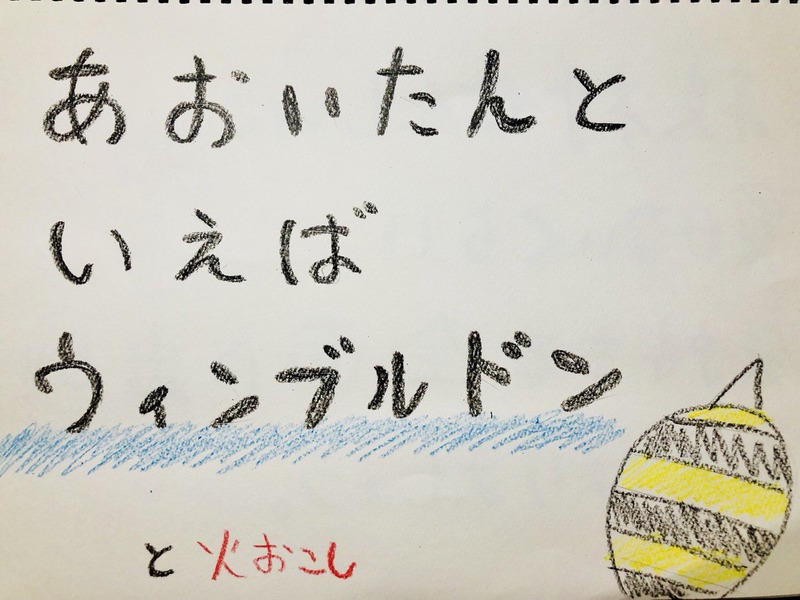 あおいたんと
いえば
ウィンブルドン
と火おこし